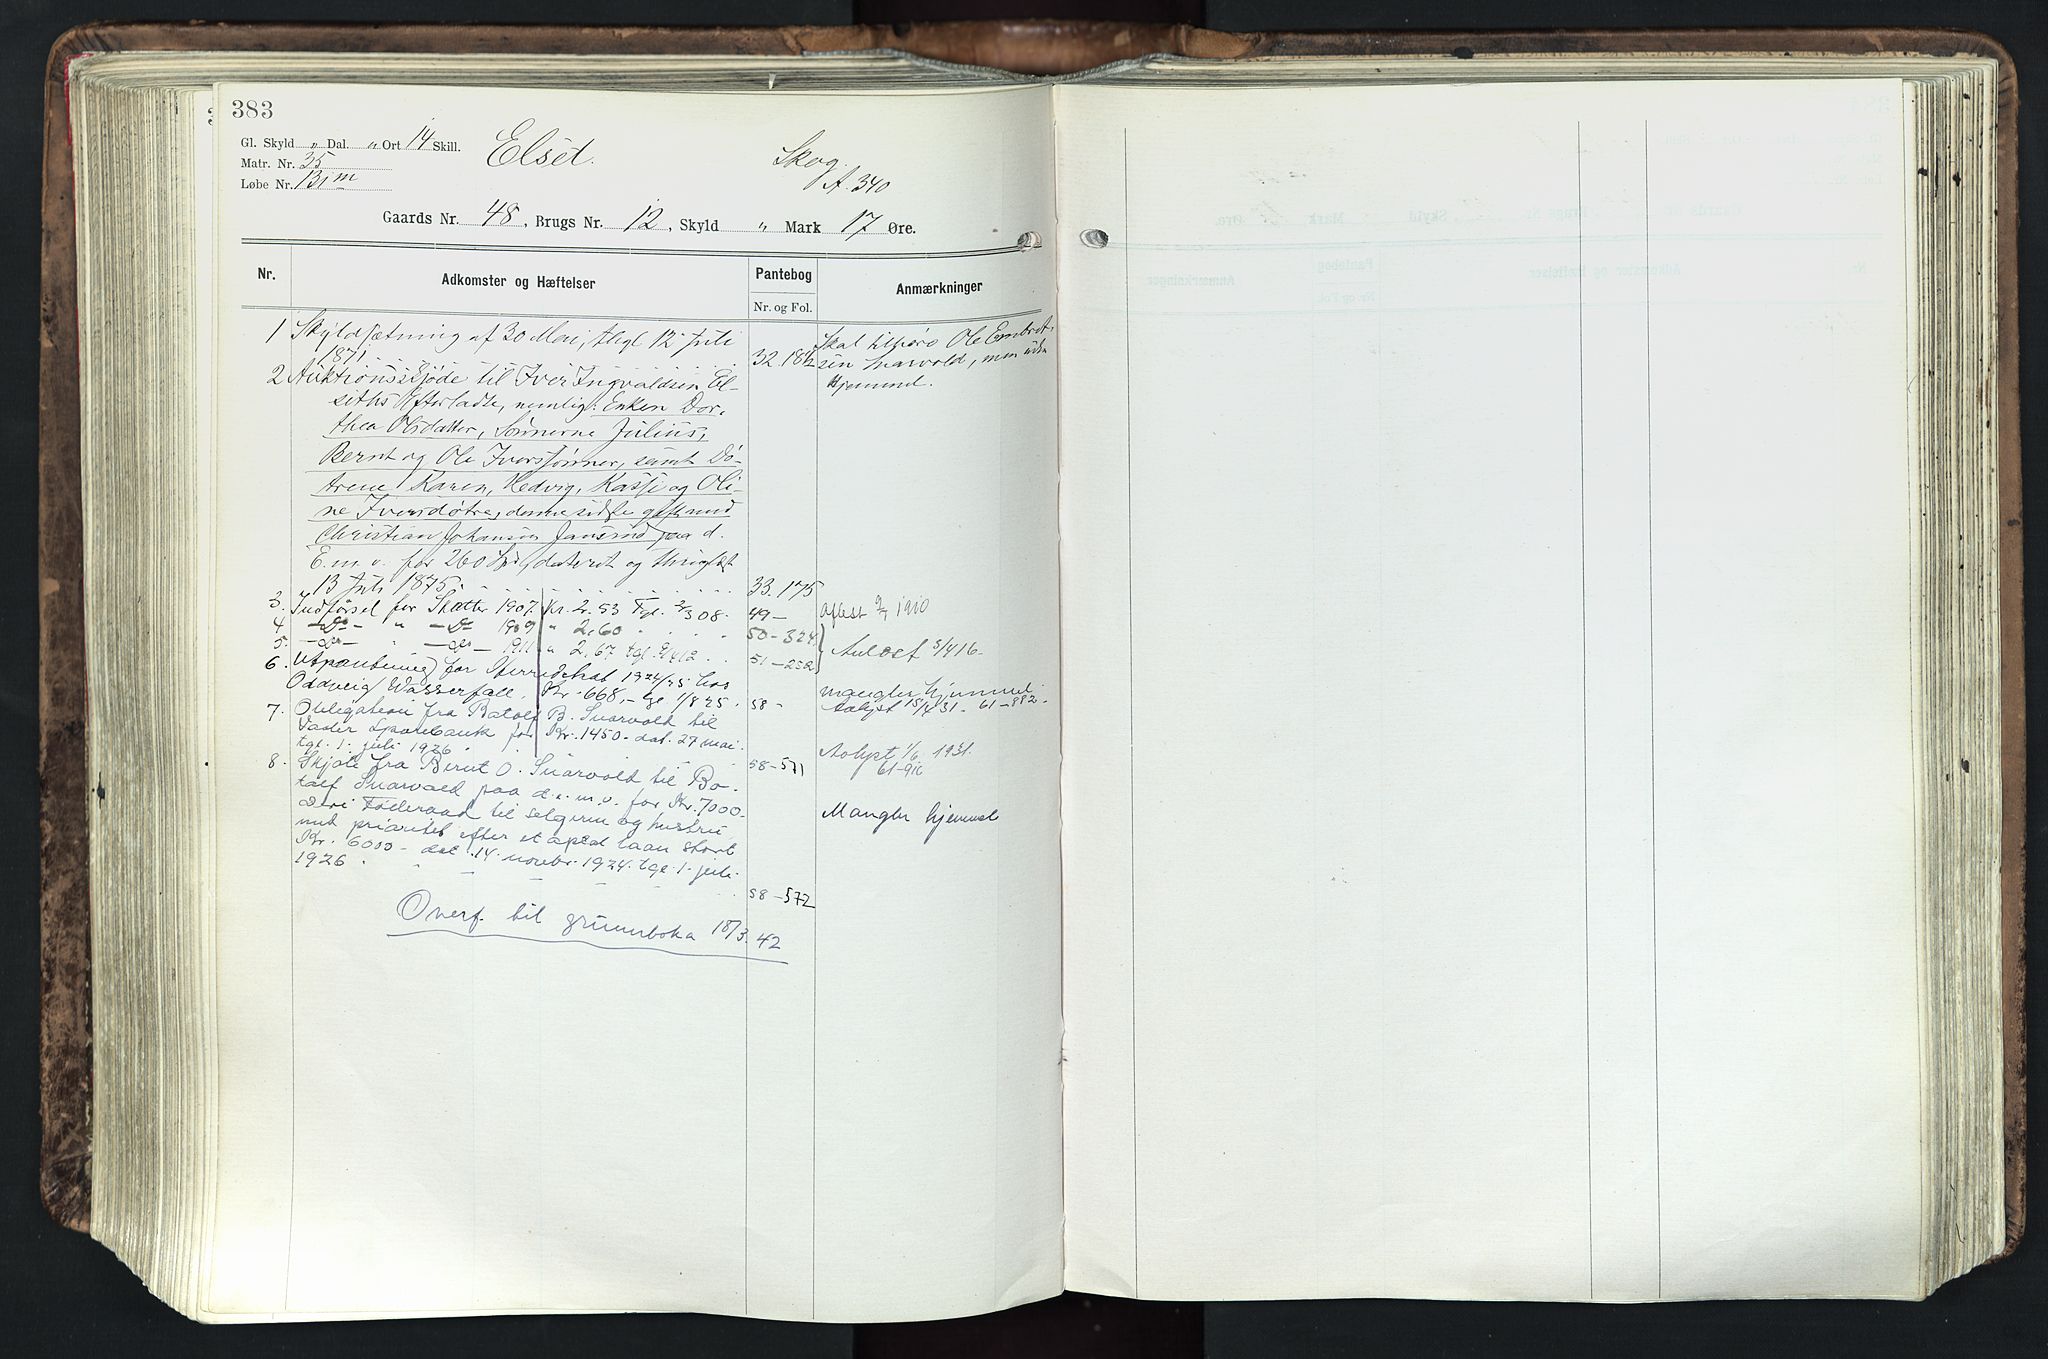 383
Gl. Skyld „ Dal. „ Ort 14 Skill.
Matr. Nr. 35
Løbe Nr. 131m
Elset.
Skog.
A. 340
Gaards Nr. 48, Brugs Nr. 12, Skyld „ Mark 17 Øre.
Nr.
Adkomster og Hæftelser
Pantebog
Nr. og Fol.
Anmærkninger
1 Skyldsætning af 30 Mai, thgl 12 Juli
1871. 32.186
Skal tilhøre Ole Embret-
sen Snarvold, men uden
Hjemmel.
2 Auktionsskjøde til Iver Ingvaldsen El-
seths Efterladte, nemlig: Enken Dor-
thea Olsdatter, Sønnerne Julius,
Bernt og Ole Iverssønner, samt Dø-
trene Karen, Hedvig, Kasse og Oli-
ne Iversdøtre, denne sidste gift med
Christian Johansen paa d.
E. m. v. for 260 Spd, dateret og thinglæst
13 Juli 1875. 33.175
3. Indførsel for Skatter 1907. Kr. 2.53 Tgl. 2/3 08. 49—
Aflest 1910
4 — Do — " — Do 1909 " 2,60 50-324
5. — do — " — do — 1911 " 2,67 tgl. 51-252
Avlest 3/4 16.
6. Utpantning for Herredskat 1924/25 hos
Oddveig Wasserfall. Kr. 668,- tgl 1/8 25. 58 -
mangler hjemmel
Avlyst 15/4 31 - 61-882.
7. Obligation fra Botolf B. Snarvold til
Vader Sparebank for Kr. 1450.- dat. 27 mai.
tgl. 1. juli 1926 58-571
Avlyst 1/6 1931.
61-916
8. Skjøte fra Bernt O. Snarvold til Bo-
tolf Snarvold paa d. e. m. v. for Kr. 7000-
Deri Føderaad til selgeren og hustru
med prioritet efter et apta laan stort
Kr. 6000 - dat. 14. novbr. 1924. tgl. 1. juli
1926. 58-572
Mangler hjemmel
Overf. til grunnboka 18/3. 42